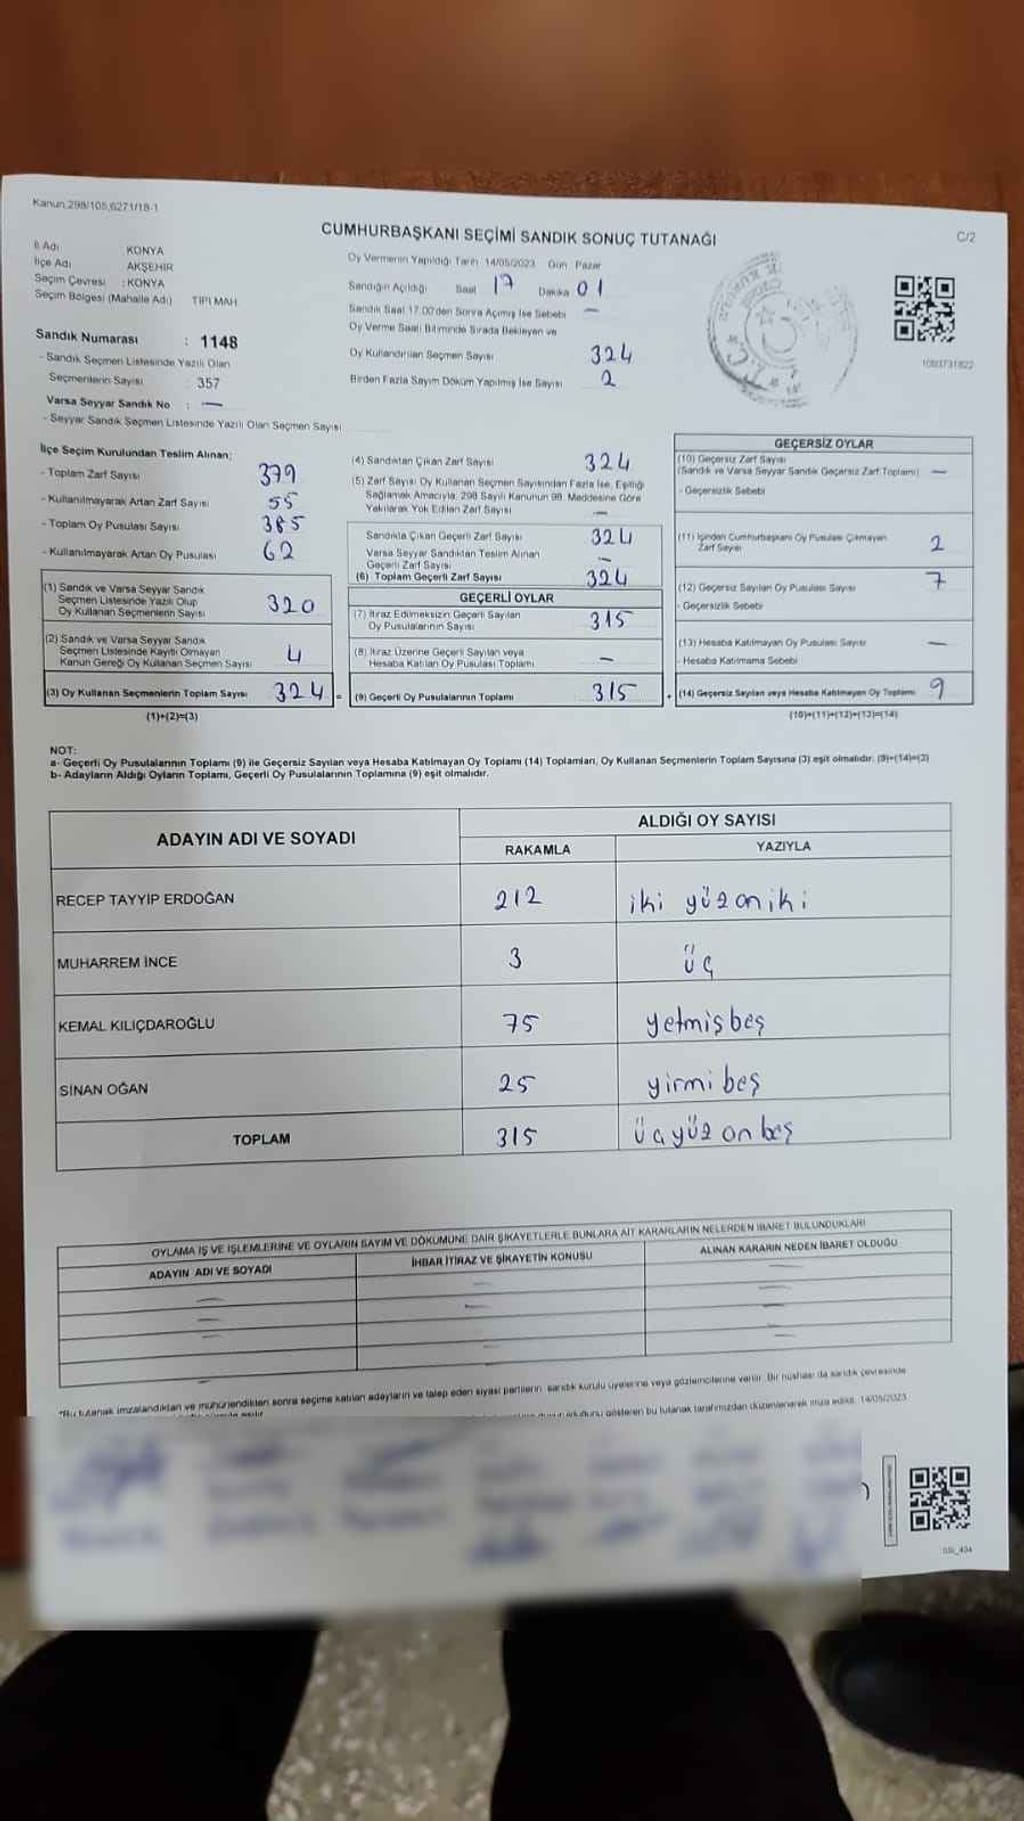 Kanun.298/105,6271/18-1
CUMHURBAŞKANI SEÇİMİ SANDIK SONUÇ TUTANAĞI
C/2
İl Adı KONYA
İlçe Adı AKŞEHİR
Seçim Çevresi : KONYA
Seçim Bölgesi (Mahalle Adı) TIPI MAH
Sandık Numarası : 1148
- Sandık Seçmen Listesinde Yazılı Olan
Seçmenlerin Sayısı : 357
Varsa Seyyar Sandık No : —
- Seyyar Sandık Seçmen Listesinde Yazılı Olan Seçmen Sayısı
Oy Vermenin Yapıldığı Tarih 14/05/2023 Gün Pazar
Sandığın Açıldığı Saat 17 Dakika 01
Sandık Saat 17.00'den Sonra Açmış İse Sebebi —
Oy Verme Saati Bitiminde Sırada Bekleyen ve
Oy Kullandırılan Seçmen Sayısı 324
Birden Fazla Sayım Döküm Yapılmış İse Sayısı 2
İlçe Seçim Kurulundan Teslim Alınan;
- Toplam Zarf Sayısı 379
- Kullanılmayarak Artan Zarf Sayısı 55
- Toplam Oy Pusulası Sayısı 385
- Kullanılmayarak Artan Oy Pusulası 62
(1) Sandık ve Varsa Seyyar Sandık
Seçmen Listesinde Yazılı Olup
Oy Kullanan Seçmenlerin Sayısı 320
(2) Sandık ve Varsa Seyyar Sandık
Seçmen Listesinde Kayıtlı Olmayan
Kanun Gereği Oy Kullanan Seçmen Sayısı 4
(3) Oy Kullanan Seçmenlerin Toplam Sayısı 324 =
(1)+(2)=(3)
(4) Sandıktan Çıkan Zarf Sayısı 324
(5) Zarf Sayısı Oy Kullanan Seçmen Sayısından Fazla İse, Eşitliği
Sağlamak Amacıyla, 298 Sayılı Kanunun 98. Maddesine Göre
Yakılarak Yok Edilen Zarf Sayısı —
Sandıkta Çıkan Geçerli Zarf Sayısı 324
Varsa Seyyar Sandıktan Teslim Alınan
Geçerli Zarf Sayısı —
(6) Toplam Geçerli Zarf Sayısı 324
GEÇERLİ OYLAR
(7) İtiraz Edilmeksizin Geçerli Sayılan
Oy Pusulalarının Sayısı 315
(8) İtiraz Üzerine Geçerli Sayılan veya
Hesaba Katılan Oy Pusulası Toplamı —
(9) Geçerli Oy Pusulalarının Toplamı 315 +
GEÇERSİZ OYLAR
(10) Geçersiz Zarf Sayısı
(Sandık ve Varsa Seyyar Sandık Geçersiz Zarf Toplamı) —
- Geçersizlik Sebebi
(11) İçinden Cumhurbaşkanı Oy Pusulası Çıkmayan
Zarf Sayısı 2
(12) Geçersiz Sayılan Oy Pusulası Sayısı 7
- Geçersizlik Sebebi
(13) Hesaba Katılmayan Oy Pusulası Sayısı —
- Hesaba Katılmama Sebebi
(14) Geçersiz Sayılan veya Hesaba Katılmayan Oy Toplamı 9
(10)+(11)+(12)+(13)=(14)
NOT:
a- Geçerli Oy Pusulalarının Toplamı (9) ile Geçersiz Sayılan veya Hesaba Katılmayan Oy Toplamı (14) Toplamları, Oy Kullanan Seçmenlerin Toplam Sayısına (3) eşit olmalıdır. (9)+(14)=(3)
b- Adayların Aldığı Oyların Toplamı, Geçerli Oy Pusulalarının Toplamına (9) eşit olmalıdır.
ADAYIN ADI VE SOYADI ALDIĞI OY SAYISI
RAKAMLA YAZIYLA
RECEP TAYYİP ERDOĞAN 212 iki yüz on iki
MUHARREM İNCE 3 üç
KEMAL KILIÇDAROĞLU 75 yetmiş beş
SİNAN OĞAN 25 yirmi beş
TOPLAM 315 üçyüz on beş
OYLAMA İŞ VE İŞLEMLERİNE VE OYLARIN SAYIM VE DÖKÜMÜNE DAİR ŞİKAYETLERLE BUNLARA AİT KARARLARIN NELERDEN İBARET BULUNDUKLARI
ADAYIN ADI VE SOYADI İHBAR İTİRAZ VE ŞİKAYETİN KONUSU ALINAN KARARIN NEDEN İBARET OLDUĞU
*Bu tutanak imzalandıktan ve mühürlendikten sonra seçime katılan adayların ve talep eden siyasi partilerin sandık kurulu üyelerine veya gözlemcilerine verilir. Bir nüshası da sandık çevresinde
gösteren bu tutanak tarafımızdan düzenlenerek imza edildi. 14/05/2023